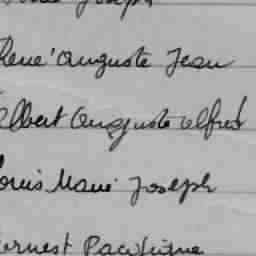 Joseph
René Auguste Jean
Albert Auguste Alfred
Louis Marie Joseph
Ernest Pacifique